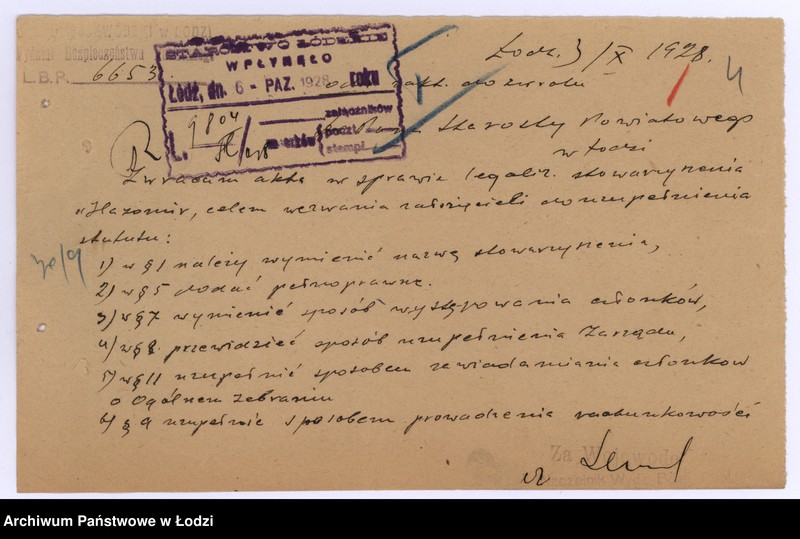 Wojewódzki w Łodzi
Wydział Bezpieczeństwa
L.B.P. 6653.
STAROSTWO ŁÓDZKIE
WPŁYNĘŁO
Łódź, dn. 6 - PAZ. 1928 roku
L. 9804
załączników
znaczków poczt.
stempl.
Łódź, 3/X 1928.
4
akt. do zwrotu
Do Pana Starosty Powiatowego
w Łodzi
Zwracam akta w sprawie legaliz. stowarzyszenia
"Hazomir, celem wezwania założycieli do uzupełnienia
statutu:
1) w § 1 należy wymienić nazwę stowarzyszenia,
2) w § 5 dodać pełnoprawne.
3) w § 7 wymienić sposób występowania członków,
4) w § 8. przewidzieć sposób uzupełnienia Zarządu,
5) w § 11 uzupełnić sposobem zawiadamiania członków
o Ogólnem Zebraniu
6) § 9 uzupełnić sposobem prowadzenia rachunkowości
Za Wojewodę
Naczelnik Wydz.
Archiwum Państwowe w Łodzi